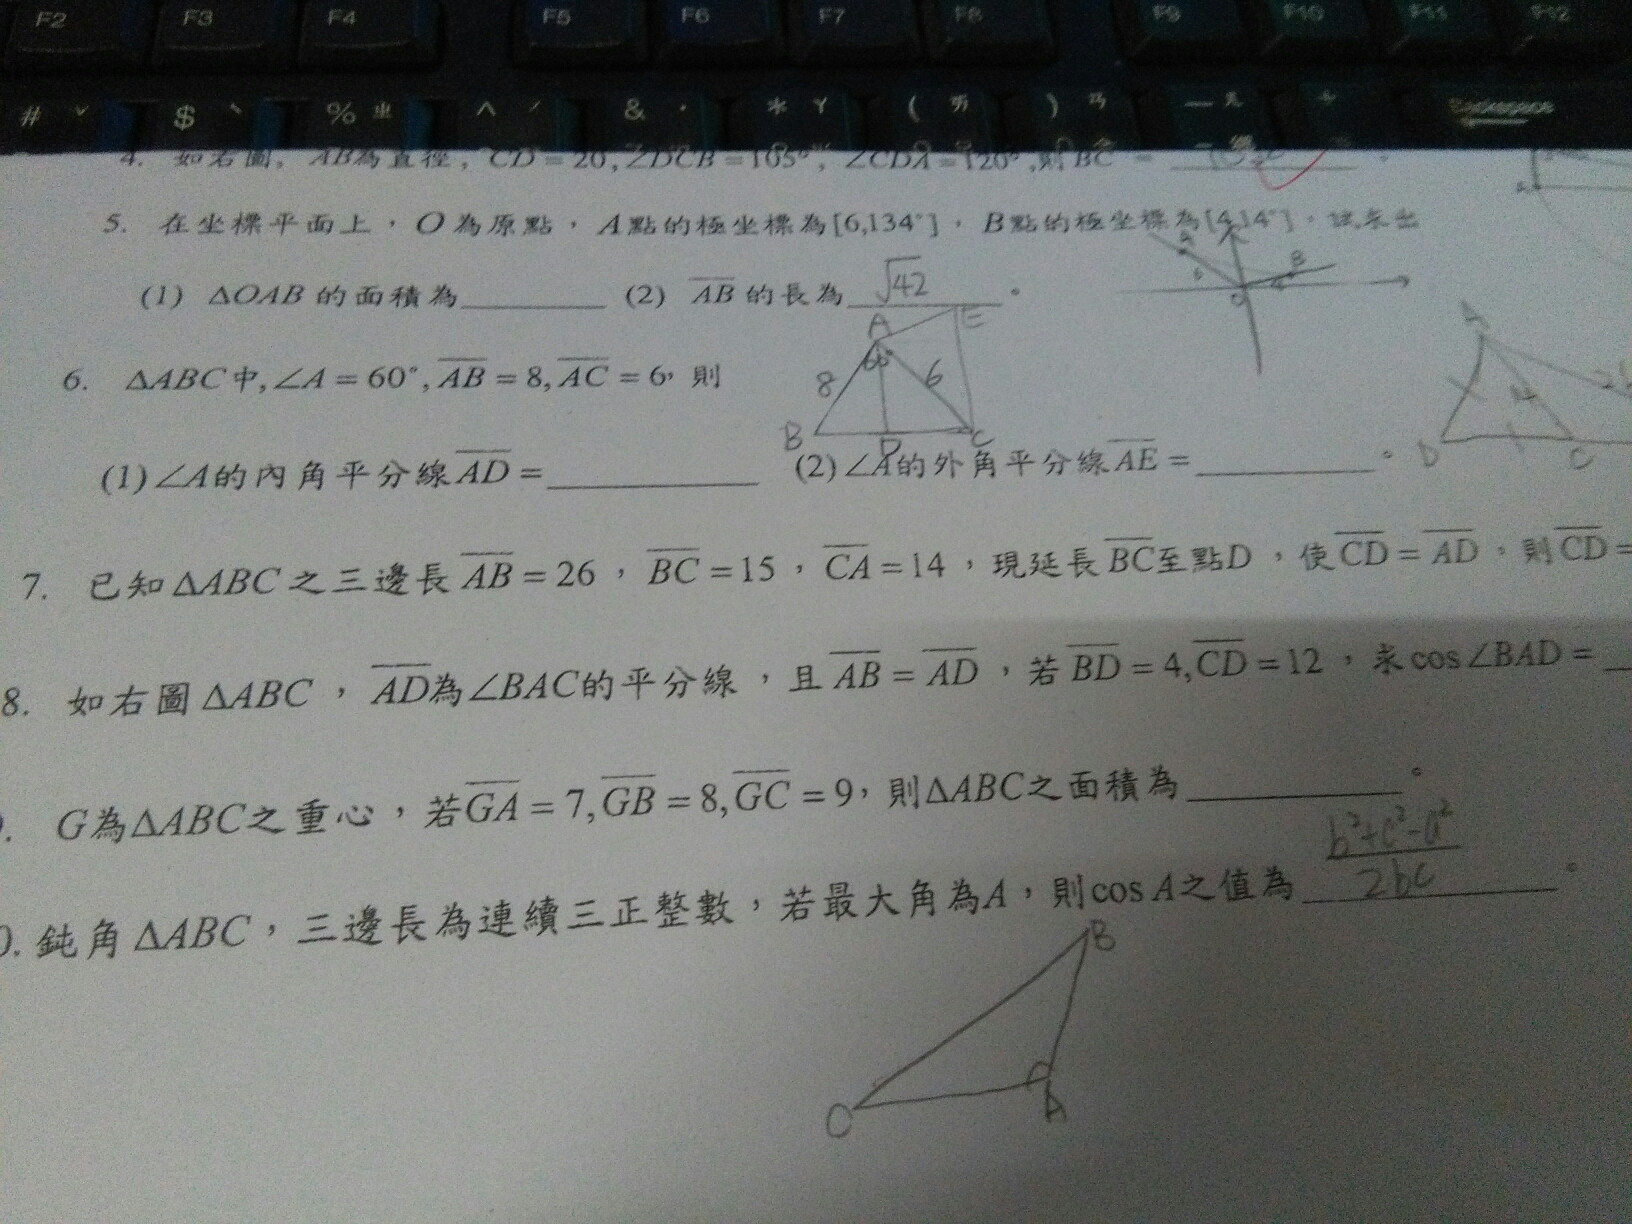 F2 F3 F4 F5 F6 F7 F8 F9 F10 F11 F12
# ˇ $ ˋ % ㄓ ^ ˊ & ˙ * ㄚ ( ㄞ ) ㄢ — ㄦ Backspace
4. 如右圖, AB為直徑, CD = 20, ∠DCB = 105°, ∠CDA = 120°, 則 BC =
5. 在坐標平面上，O為原點，A點的極坐標為[6,134°]，B點的極坐標為[4,14°]，試求出
A B O
(1) ΔOAB 的面積為________ (2) AB 的長為 √42 。
A E 60° 8 6 B D C
6. ΔABC中, ∠A = 60°, AB = 8, AC = 6, 則
A D C
(1) ∠A的內角平分線AD = ________ (2) ∠A的外角平分線AE = ________ 。
7. 已知ΔABC之三邊長AB = 26，BC = 15，CA = 14，現延長BC至點D，使CD = AD，則CD =
8. 如右圖ΔABC，AD為∠BAC的平分線，且AB = AD，若BD = 4, CD = 12，求cos∠BAD =
. G為ΔABC之重心，若GA = 7, GB = 8, GC = 9，則ΔABC之面積為________ 。
0. 鈍角ΔABC，三邊長為連續三正整數，若最大角為A，則cos A之值為 b²+c²-a² / 2bc 。
B
C A